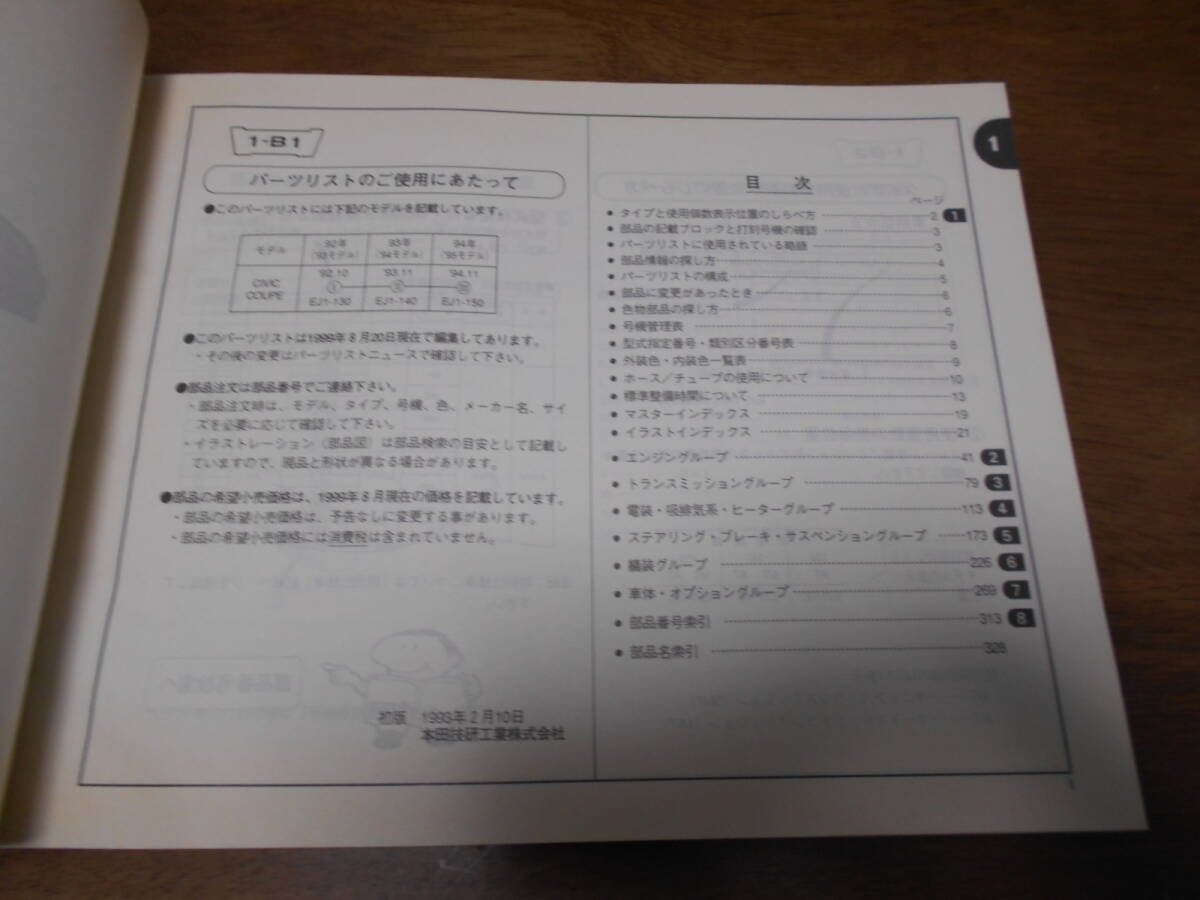 1-B1
パーツリストのご使用にあたって
●このパーツリストには下記のモデルを記載しています。
モデル 92年 ('93モデル) 93年 ('94モデル) 94年 ('95モデル)
CIVIC COUPE '92.10 '93.11 '94.11
EJ1-130 EJ1-140 EJ1-150
●このパーツリストは1999年8月20日現在で編集してあります。
・その後の変更はパーツリストニュースで確認して下さい。
●部品注文は部品番号でご連絡下さい。
・部品注文時は、モデル、タイプ、号機、色、メーカー名、サイ
ズを必要に応じて確認して下さい。
・イラストレーション(部品図)は部品検索の目安として記載し
ていますので、現品と形状が異なる場合があります。
●部品の希望小売価格は、1999年8月現在の価格を記載しています。
・部品の希望小売価格は、予告なしに変更する事があります。
・部品の希望小売価格には消費税は含まれていません。
初版 1993年2月10日
本田技研工業株式会社
目 次
ページ
● タイプと使用個数表示位置のしらべ方 2 1
● 部品の記載ブロックと打刻号機の確認 3
● パーツリストに使用されている略語 3
● 部品情報の探し方 4
● パーツリストの構成 5
● 部品に変更があったとき 6
● 色物部品の探し方 6
● 号機管理表 7
● 型式指定番号・類別区分番号表 8
● 外装色・内装色一覧表 9
● ホース/チューブの使用について 10
● 標準整備時間について 13
● マスターインデックス 19
● イラストインデックス 21
● エンジングループ 41 2
● トランスミッショングループ 79 3
● 電装・吸排気系・ヒーターグループ 113 4
● ステアリング・ブレーキ・サスペンショングループ 173 5
● 艤装グループ 226 6
● 車体・オプショングループ 269 7
● 部品番号索引 313 8
● 部品名索引 328
1
1